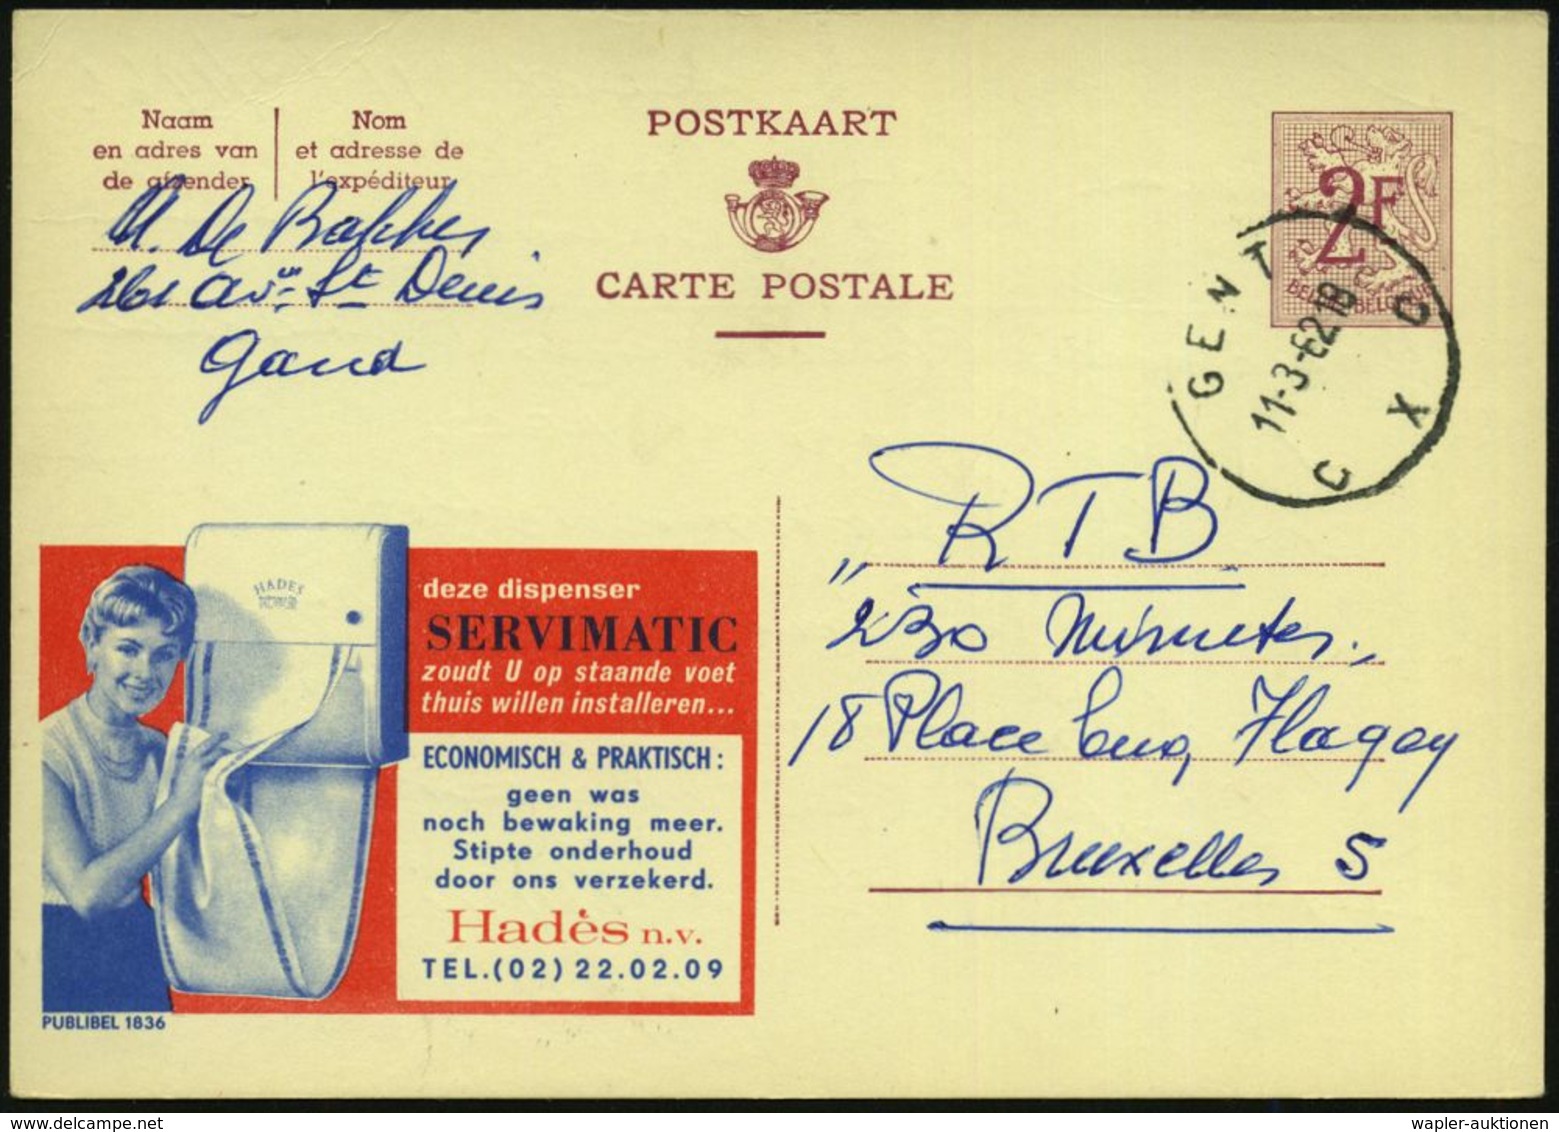 Naam
en adres van
de afzender
Nom
et adresse de
l'expéditeur
POSTKAART
CARTE POSTALE
2F
De Bakker
261 Avᵘᵉ Sᵗ Denis
Gand
GENT
11-3-62 18
C X C
"RTB
230 Minutes"
18 Place Eug, Flagey
Bruxelles 5
HADES
deze dispenser
SERVIMATIC
zoudt U op staande voet
thuis willen installeren...
ECONOMISCH & PRAKTISCH:
geen was
noch bewaking meer.
Stipte onderhoud
door ons verzekerd.
Hadès n.v.
TEL.(02) 22.02.09
PUBLIBEL 1836
wapler-auktionen